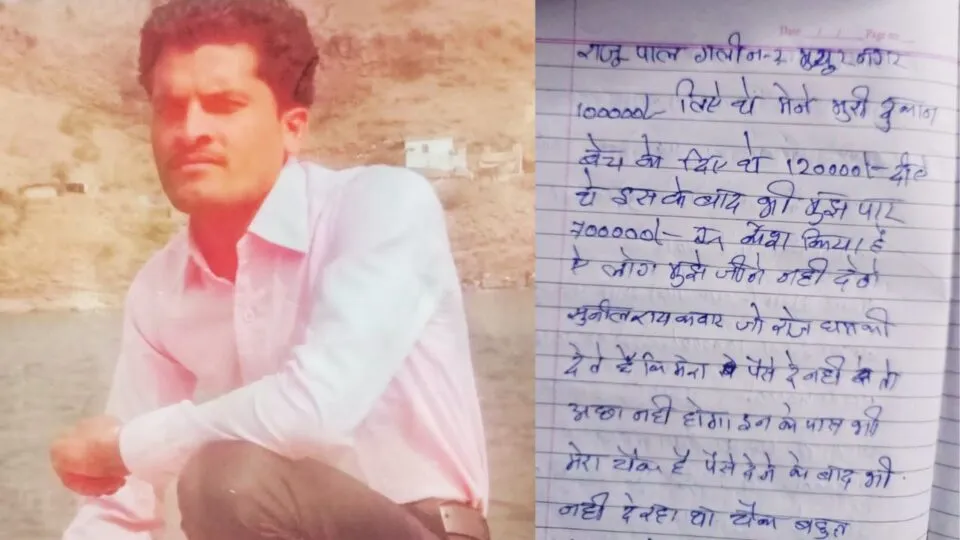 Date / / Page no
राजू पाल गली न-2 मयूर नगर
100000/- लिऐ थे मेने मुरी दुकान
बेच के दिए थे 120000/- दीऐ
थे इस के बाद भी मुझ पार
700000/- का केश किया है
ऐ लोग मुझे जीने नही देगे
सुनील रायकवार जो रोज धमकी
देते है कि मेरा पैसे दे नही तो
अछा नही होगा इन के पास भी
मेरा चैक है पैसे देने के बाद भी
नही दे रहा था चैक बहुत